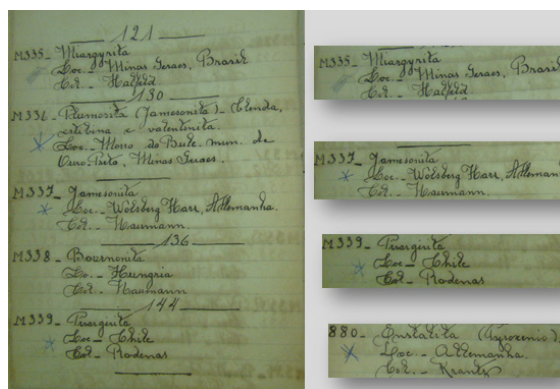 121
M335_ Miargyrita
Loc_ Minas Geraes, Brasil
Col_ Halfeld
130
M336_ Plumosita (Jamesonita)_ blenda,
estibina e valentinita.
Loc_ Morro do mun. de
Ouro Preto, Minas Geraes.
M337_ Jamesonita
Loc_ Wolsberg Harr, Allemanha.
Col_ Naumann
136
M338_ Bournonita
Loc_ Hungria
Col_ Naumann
144
M339_ Pirargirita
Loc_ Chile
Col_ Rodenas
M335_ Miargyrita
Loc_ Minas Geraes, Brasil
Col_ Halfeld
M337_ Jamesonita
Loc_ Wolsberg Harr, Alleman
Col_ Naumann.
M339_ Pirargirita
Loc_ Chile
Col_ Rodenas
880_ Enstatita
Loc_ Allemanha.
Col_ Krantz